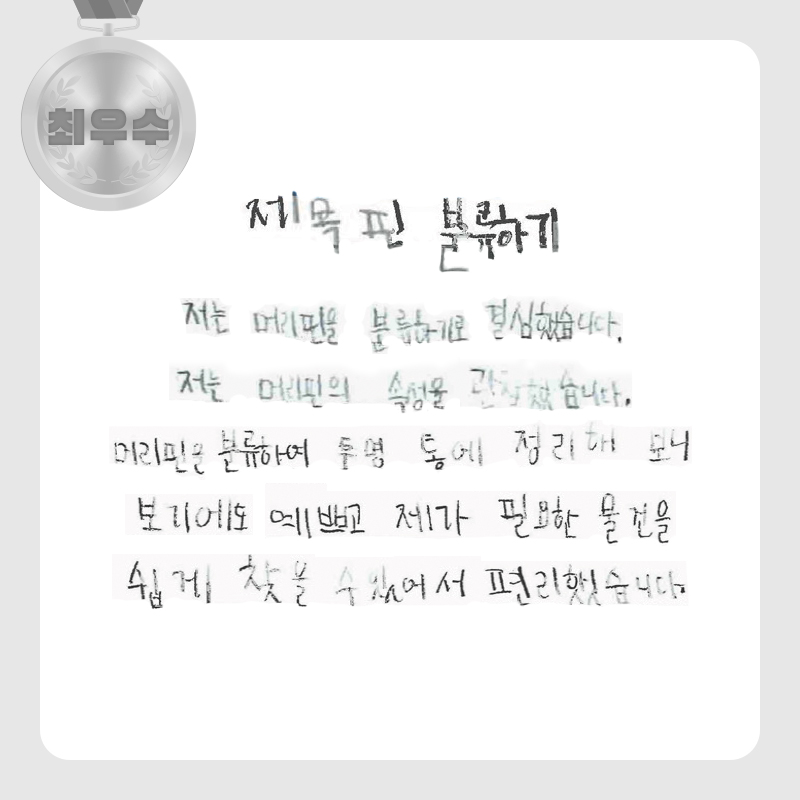 최우수
제목 핀 분류하기
저는 머리핀을 분류하기로 결심했습니다.
저는 머리핀의 속성을 관찰했습니다.
머리핀을 분류하여 투명 통에 정리해 보니
보기에도 예쁘고 제가 필요한 물건을
쉽게 찾을 수 있어서 편리했습니다.